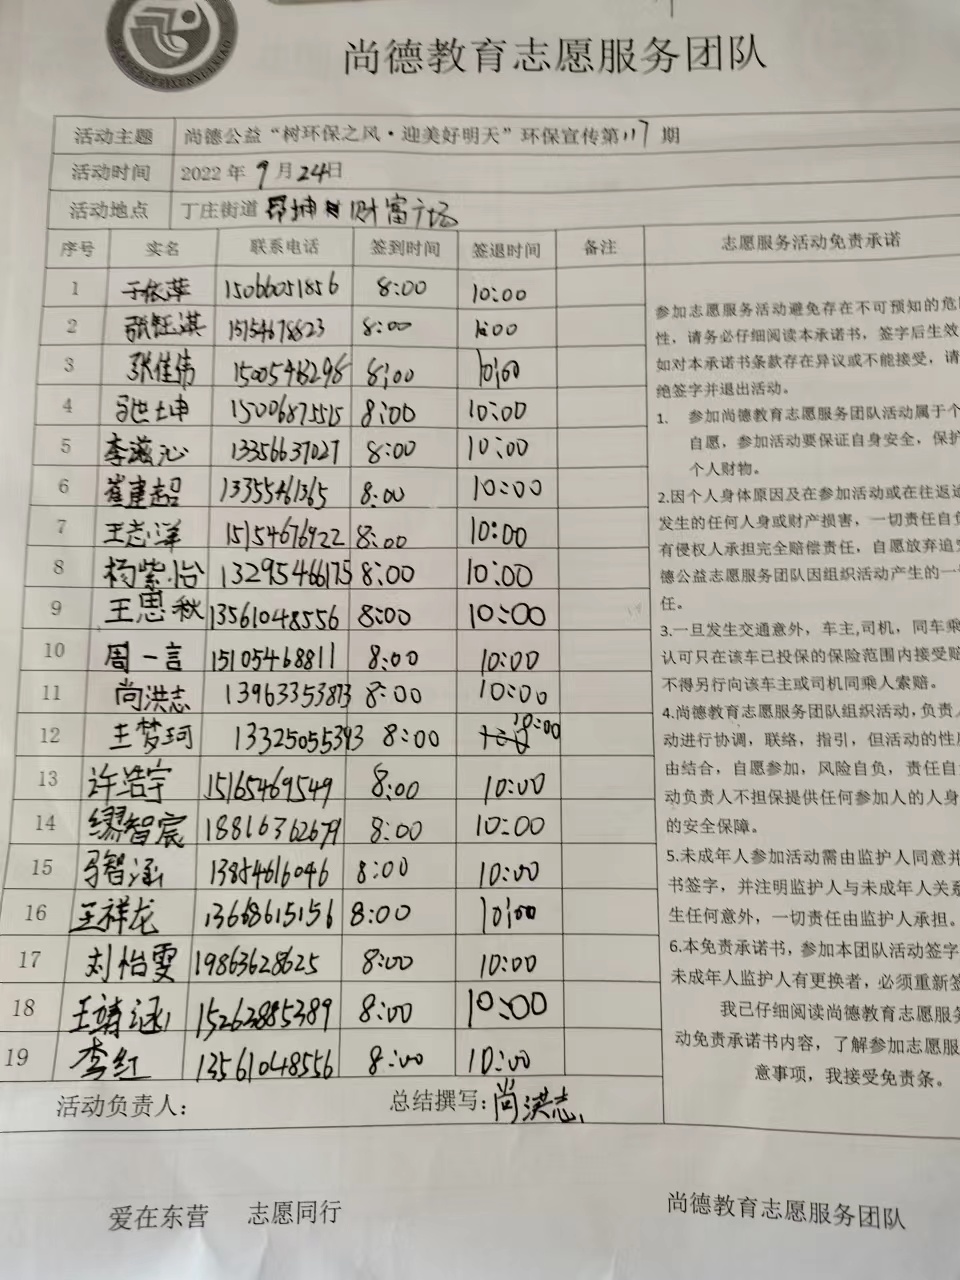 尚德教育志愿服务团队
活动主题 尚德公益“树环保之风·迎美好明天”环保宣传第117期
活动时间 2022年9月24日
活动地点 丁庄街道 财富广场
序号 实名 联系电话 签到时间 签退时间 备注 志愿服务活动免责承诺
1 于依萍 15066051856 8:00 10:00
2 张钰淇 15154678823 8:00 10:00
3 张佳伟 15005463298 8:00 10:00
4 15006875515 8:00 10:00
5 李滋沁 13356637027 8:00 10:00
6 崔建超 13355461365 8:00 10:00
7 王志洋 15154676922 8:00 10:00
8 杨紫怡 13295466175 8:00 10:00
9 王思秋 13561048556 8:00 10:00
10 周一言 15105468811 8:00 10:00
11 尚洪志 13963353873 8:00 10:00
12 王梦珂 13325055393 8:00 10:00
13 许浩宇 15165469549 8:00 10:00
14 缪智宸 18816362679 8:00 10:00
15 马智涵 13854616046 8:00 10:00
16 王祥龙 13668615156 8:00 10:00
17 刘怡雯 19863628625 8:00 10:00
18 王靖涵 15263885389 8:00 10:00
19 李红 13561048556 8:00 10:00
参加志愿服务活动避免存在不可预知的危
性，请务必仔细阅读本承诺书，签字后生效
如对本承诺书条款存在异议或不能接受，请
绝签字并退出活动。
1. 参加尚德教育志愿服务团队活动属于个
自愿，参加活动要保证自身安全，保护
个人财物。
2.因个人身体原因及在参加活动或在往返途
发生的任何人身或财产损害，一切责任自负
有侵权人承担完全赔偿责任，自愿放弃追究
德公益志愿服务团队因组织活动产生的一
任。
3.一旦发生交通意外，车主,司机，同车乘
认可只在该车已投保的保险范围内接受赔
不得另行向该车主或司机同乘人索赔。
4.尚德教育志愿服务团队组织活动，负责人
动进行协调，联络，指引，但活动的性质
由结合，自愿参加，风险自负，责任自
动负责人不担保提供任何参加人的人身
的安全保障。
5.未成年人参加活动需由监护人同意并
书签字，并注明监护人与未成年人关系
生任何意外，一切责任由监护人承担。
6.本免责承诺书，参加本团队活动签字
未成年人监护人有更换者，必须重新签
我已仔细阅读尚德教育志愿服务
动免责承诺书内容，了解参加志愿服
意事项，我接受免责条。
活动负责人： 总结撰写：尚洪志
爱在东营 志愿同行 尚德教育志愿服务团队